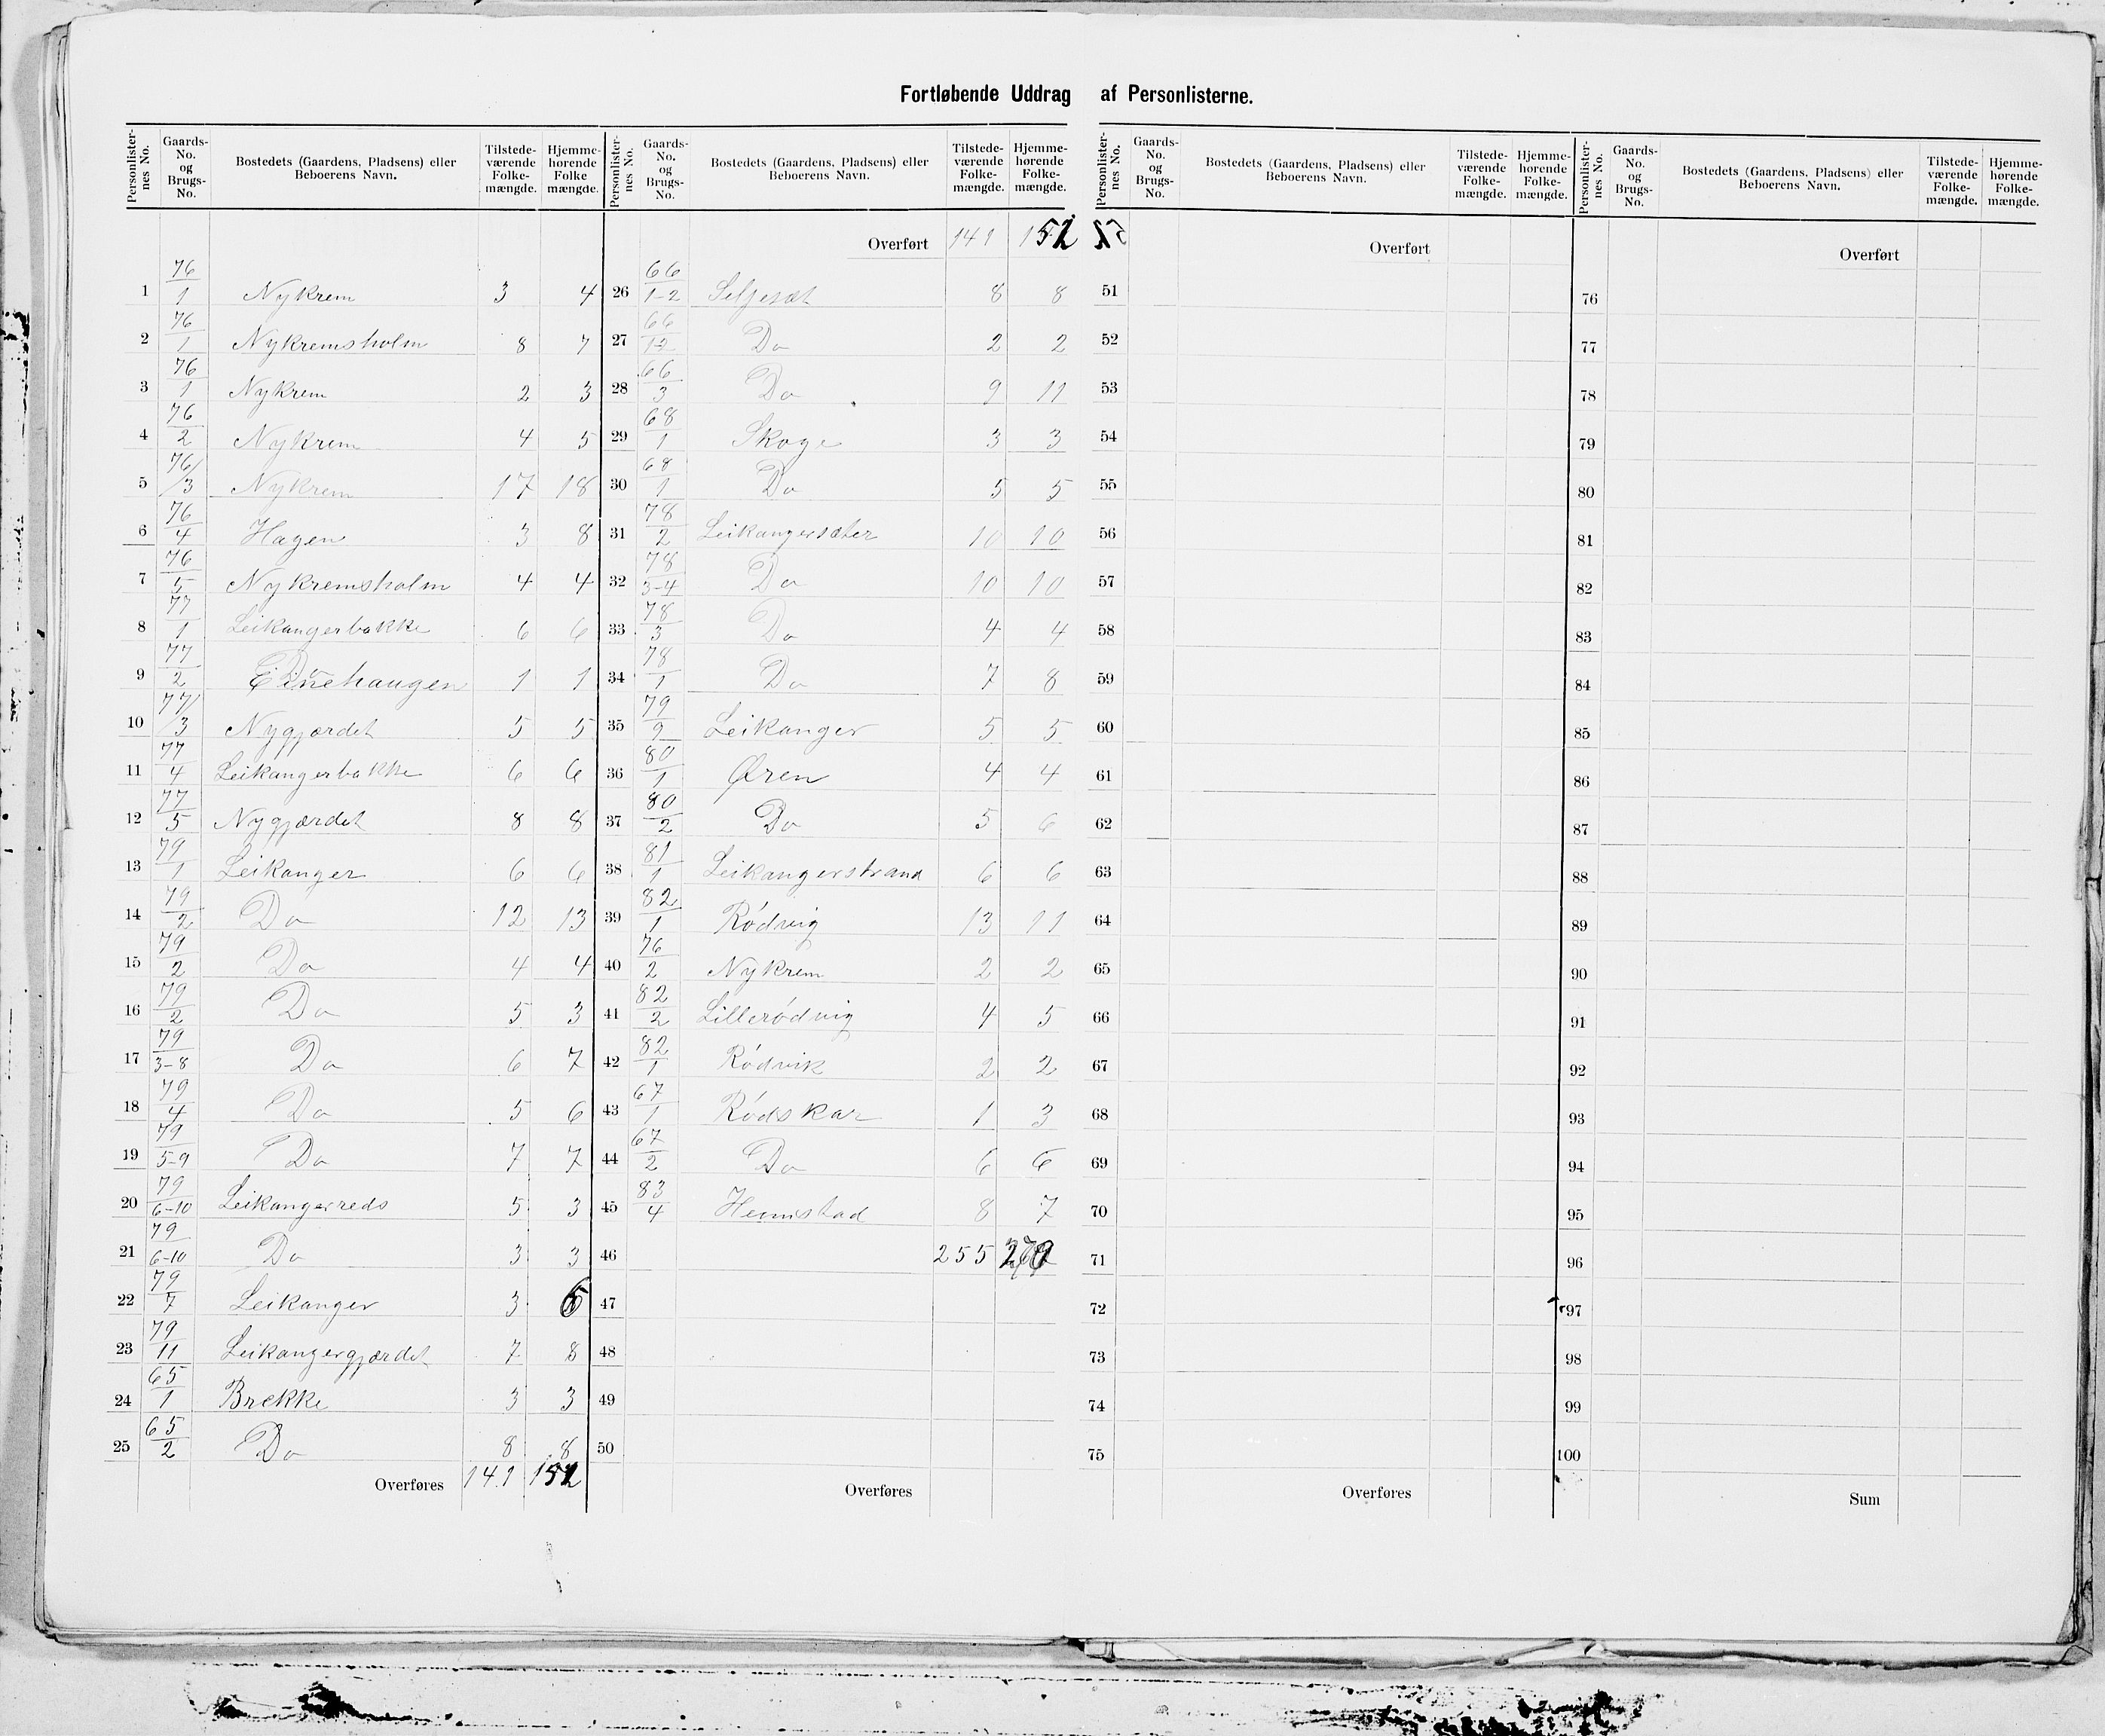 Fortløbende Uddrag af Personlisterne.
Personlister-nes No. Gaards-No. og Brugs-No. Bostedets (Gaardens, Pladsens) eller Beboerens Navn. Tilstede-værende Folke-mængde. Hjemme-hørende Folke mængde.
1 76/1 Nykrem 3 4
2 76/1 Nykremsholm 8 7
3 76/1 Nykrem 2 3
4 76/2 Nykrem 4 5
5 76/3 Nykrem 17 18
6 76/4 Hagen 3 8
7 76/5 Nykremsholm 4 4
8 77/1 Leikangerbakke 6 6
9 77/2 1 1
10 77/3 Nygjærdet 5 5
11 77/4 Leikangerbakke 6 6
12 77/5 Nygjærdet 8 8
13 79/1 Leikanger 6 6
14 79/2 Do 12 13
15 79/2 Do 4 4
16 79/2 Do 5 3
17 79/3-8 Do 6 7
18 79/4 Do 5 6
19 79/5-9 Do 7 7
20 79/6-10 Leikangerreds 5 3
21 79/6-10 Do 3 3
22 79/7 Leikanger 3
23 79/11 Leikangergjærdet 7 8
24 65/1 Brekke 3 3
25 65/2 Do 8 8
Overføres 141 152
Personlister-nes No. Gaards-No. og Brugs-No. Bostedets (Gaardens, Pladsens) eller Beboerens Navn. Tilstede-værende Folke-mængde. Hjemme-hørende Folke-mængde.
Overført 141 152
26 66/1-2 Seljesæt 8 8
27 66/12 Do 2 2
28 66/3 Do 9 11
29 68/1 Skoge 3 3
30 68/1 Do 5 5
31 78/2 Leikangersæter 10 10
32 78/3-4 Do 10 10
33 78/3 Do 4 4
34 78/1 Do 7 8
35 79/9 Leikanger 5 5
36 80/1 Øren 4 4
37 80/2 Do 5 6
38 81/1 Leikangerstrand 6 6
39 82/1 Rødvig 13 11
40 76/2 Nykrem 2 2
41 82/2 Lillerødvig 4 5
42 82/1 Rødvik 2 2
43 67/1 Rødskar 1 3
44 67/2 Do 6 6
45 83/4 Hennstad 8 7
46 255
47
48
49
50
Overføres
Personlister-nes No. Gaards-No. og Brugs-No. Bostedets (Gaardens, Pladsens) eller Beboerens Navn. Tilstede-værende Folke-mængde. Hjemme-hørende Folke-mængde.
Overført
51
52
53
54
55
56
57
58
59
60
61
62
63
64
65
66
67
68
69
70
71
72
73
74
75
Overføres
Personlister-nes No. Gaards-No. og Brugs-No. Bostedets (Gaardens, Pladsens) eller Beboerens Navn. Tilstede-værende Folke-mængde. Hjemme-hørende Folke-mængde.
Overført
76
77
78
79
80
81
82
83
84
85
86
87
88
89
90
91
92
93
94
95
96
97
98
99
100
Sum